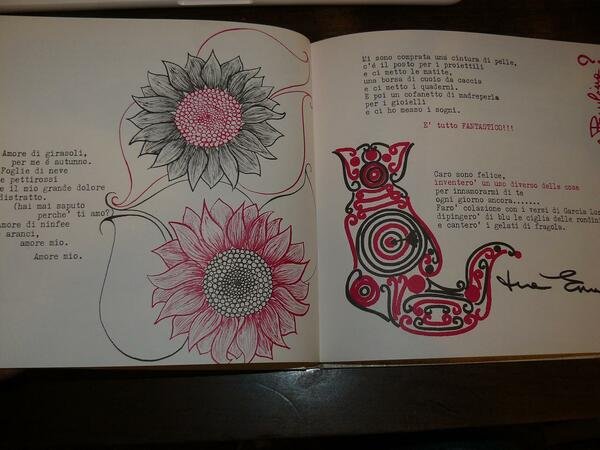 Amore di girasoli,
per me é autunno.
Foglie di neve
e pettirossi
e il mio grande dolore
distratto.
(hai mai saputo
perche' ti amo?
Amore di ninfee
e aranci,
amore mio.
Amore mio.
Mi sono comprata una cintura di pelle,
c'é il posto per i proiettili
e ci metto le matite,
una borsa di cuoio da caccia
e ci metto i quaderni.
E poi un cofanetto di madreperla
per i gioielli
e ci ho messo i sogni.
E' tutto FANTASTICO!!!
Caro sono felice,
inventero' un uso diverso delle cose
per innamorarmi di te
ogni giorno ancora.......
Faro' colazione con i versi di Garcia Lor
dipingero' di blu le ciglia delle rondini
e cantero' i gelati di fragola.